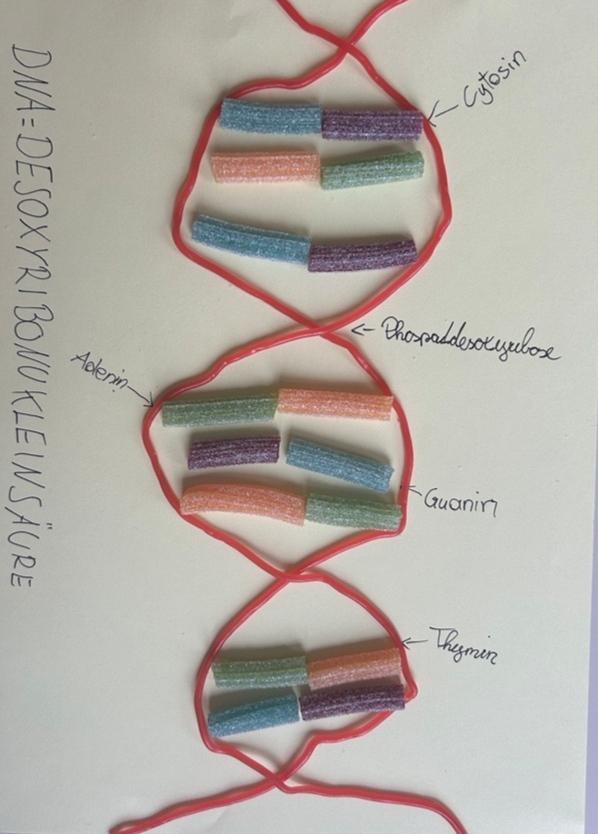 DNA = DESOXYRIBONUKLEINSÄURE
Cytosin
Adenin
Guanin
Thymin